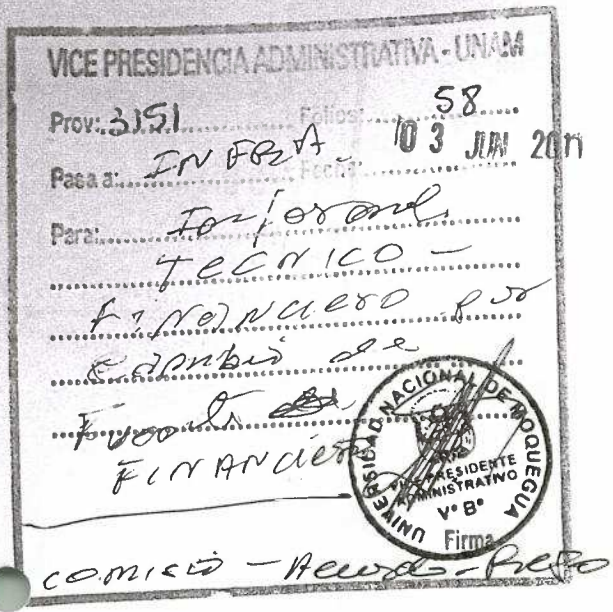 VICE PRESIDENCIA ADMINISTRATIVA - UNAM
Prov: 3151 Folios: 58
Pasa a: INFRA Fecha: 03 JUN 2011
Para: Informe
TECNICO -
FINANCIERO por
cambio de
Fuente
FINANCIERO
UNIVERSIDAD NACIONAL DE MOQUEGUA
VICE PRESIDENTE
ADMINISTRATIVO
V° B°
Firma
COMISIO - Acuerdo -